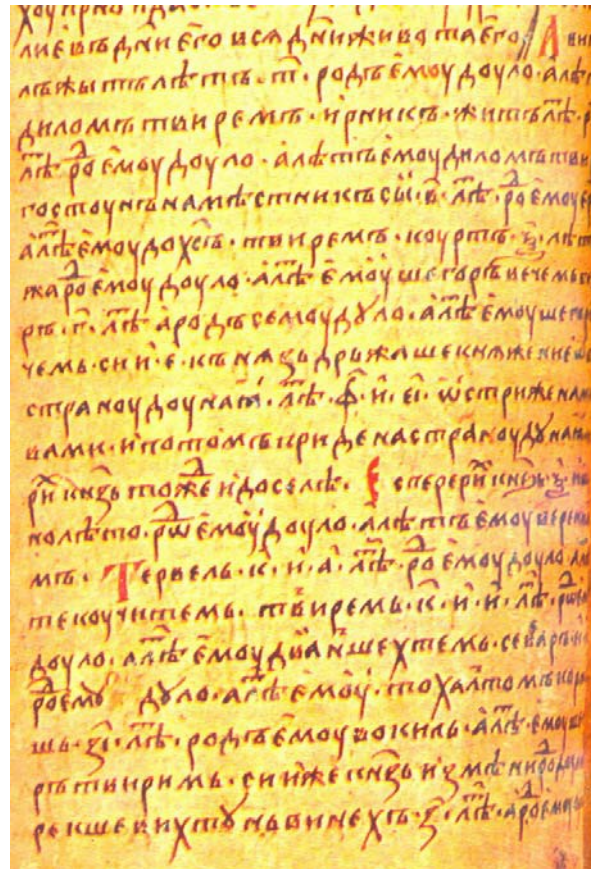 лиѐвъ дн҃и ѐго вся дн҃и живота ѐго А ви
лъжыть лѣтъ т҃ родъ ѐмоу доуло а лѣ
диломъ твиремъ ирникъ житъ лѣ
лѣ ро ѐмоу доуло а лѣтъ ѐмоу диломъ тви
гостоунъ намѣстникъ сы в҃ лѣ ро ѐмоу
а лѣ ѐмоу дохсъ твиремъ коуртъ ѯ҃ лѣт
жа ро ѐмоу доуло а лѣ ѐмоу шегоръ вечемь
г҃ лѣ а родъ семоу дуло а лѣ ѐмоу шегоръ
чемь сии е҃ кънязь дрьжаше княжение
страноу доуная лѣ ф҃ и еі҃ ѡстрижена
вами и потомъ приде на страноу дуная
рих кнзь тоже и доселѣ Есперерих кнзь ѯ҃
но лѣто рѡ ѐмоу доуло а лѣтъ ѐмоу верени
мъ Тервель к҃ и а҃ лѣ ро ѐмоу доуло а
текоучитемь твиремь к҃ и и҃ лѣ рѡ
доуло а лѣ ѐмоу дванъшехтемь севаръ
ро ѐму дуло а лѣ ѐмоу тохалтомъ кор
шь зі҃ лѣ родъ ѐмоу вокиль а лѣ ѐмоу
ръ твиримь сии же кнзь измѣни ро
рекше вихтунь винехъ з҃ лѣ а ро ѐмоу